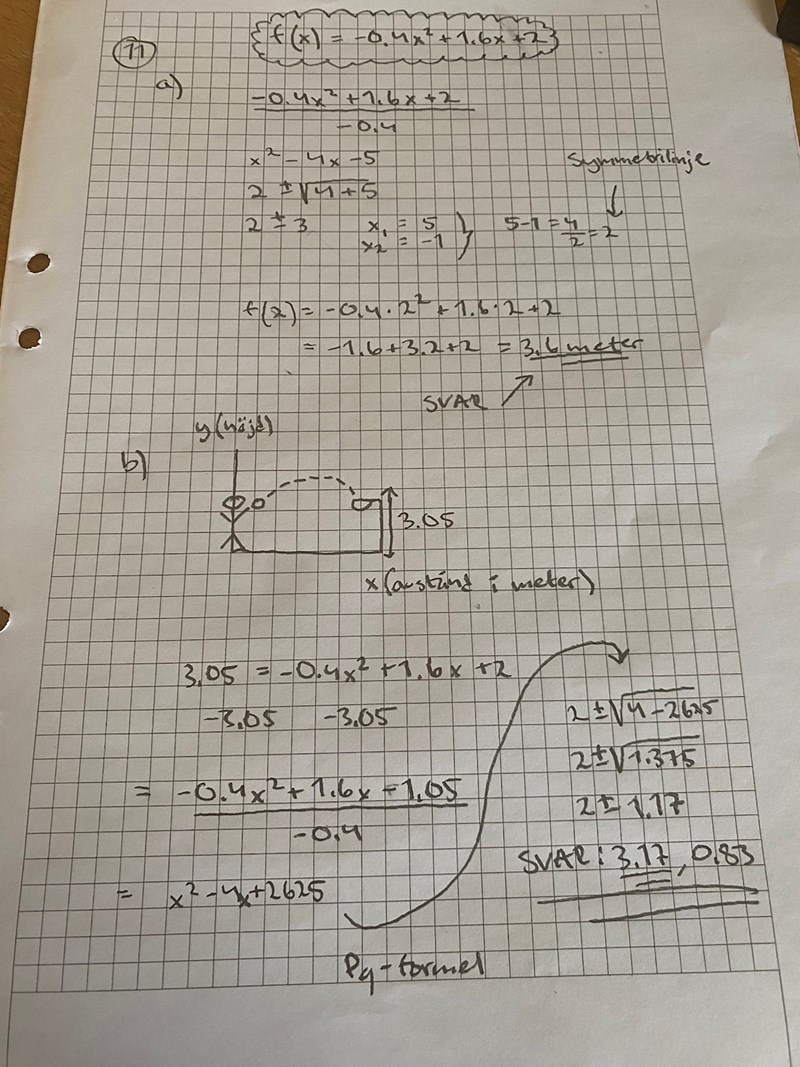 f(x) = -0.4x² + 1.6x + 2
11
a)
-0.4x² + 1.6x + 2
-0.4
x² - 4x - 5
Symmetrilinje
2 ± √4+5
2 ± 3 x₁ = 5 x₂ = -1 } 5-1 = 4/2 = 2
f(2) = -0.4 · 2² + 1.6 · 2 + 2
= -1.6 + 3.2 + 2 = 3.6 meter
SVAR
y (höjd)
b)
3.05
x (avstånd i meter)
3.05 = -0.4x² + 1.6x + 2
-3.05 -3.05
= -0.4x² + 1.6x - 1.05
-0.4
= x² - 4x + 2625
Pq-formel
2 ± √4-2625
2 ± √1.375
2 ± 1.17
SVAR: 3.17, 0.83